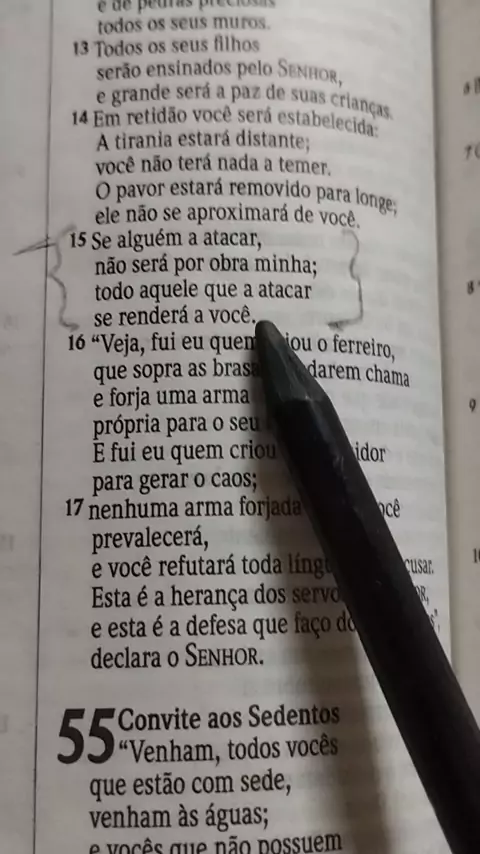 e de pedras preciosas
todos os seus muros.
13 Todos os seus filhos
serão ensinados pelo SENHOR,
e grande será a paz de suas crianças.
14 Em retidão você será estabelecida:
A tirania estará distante;
você não terá nada a temer.
O pavor estará removido para longe;
ele não se aproximará de você.
15 Se alguém a atacar,
não será por obra minha;
todo aquele que a atacar
se renderá a você.
16 “Veja, fui eu quem iou o ferreiro,
que sopra as brasa darem chama
e forja uma arma
própria para o seu
E fui eu quem criou idor
para gerar o caos;
17 nenhuma arma forjada ocê
prevalecerá,
e você refutará toda língu cusar.
Esta é a herança dos servo R,
e esta é a defesa que faço do s”,
declara o SENHOR.
55 Convite aos Sedentos
“Venham, todos vocês
que estão com sede,
venham às águas;
e vocês que não possuem
8
9